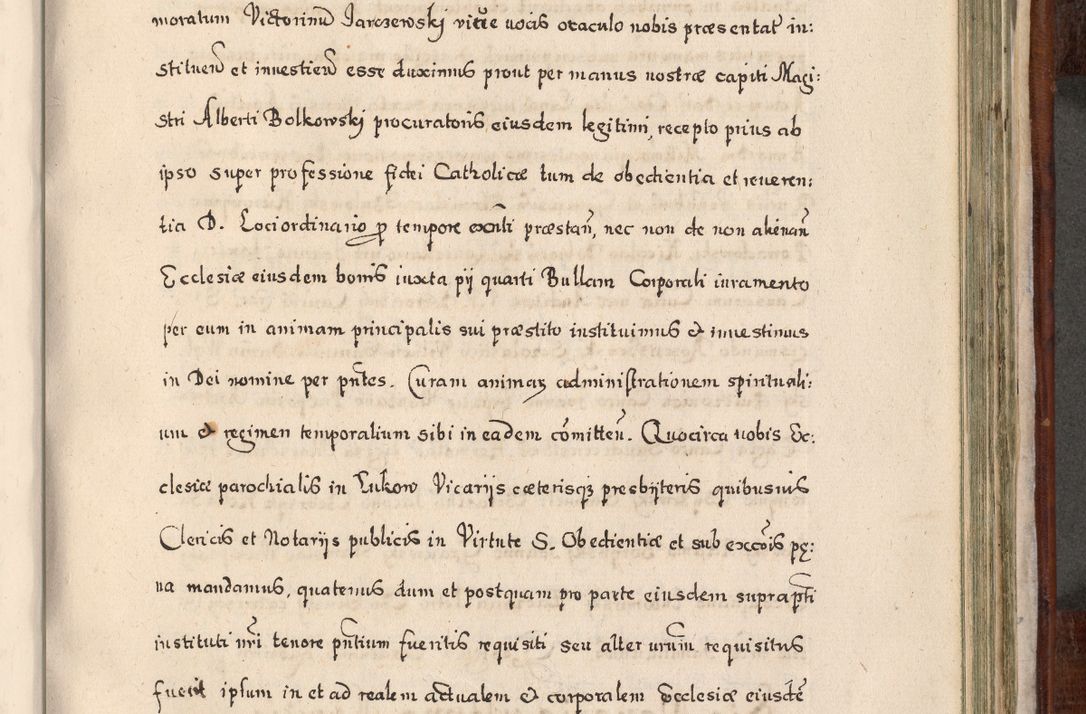 moratum Victorinū Jarczewskj vitæ vocis oraculo nobis præsentat in:
stituen̄ et investien̄ esse duximus prout per manus nostræ capiti Magi:
stri Alberti Bolkowskj procuratoris eiusdem legitimi, recepto prius ab
ipso super professione fidei Catholicæ tum de obedientia et reveren:
tia D. Lociordinario p tempore exn̄li præstan̄, nec non de non alienan̄
Ecclesiæ eiusdem bonis iuxta pij quarti Bullam Corporali iuramento
per eum in animam principalis sui præstito instituimus & investimus
in Dei nomine per pn̄tes. Curam animaꝝ administrationem spirituali:
um & regimen temporalium sibi in eadem com̄itten̄. Quocirca vobis Ec:
clesiæ parochialis in Lukow Vicarijs cæterisqꝫ presbyteris quibusvis
Clericis et Notarijs publicis in Virtute S. Obedientiæ et sub exccōis pę:
na mandamus, quatenus dum et postquam pro parte eiusdem suprapti
instituti nr̄i tenore pn̄tium fueritis requisiti seu alter urum̄ requisitus
fuerit ipsum in et ad realem actualem & corporalem Ecclesiæ eiusdē